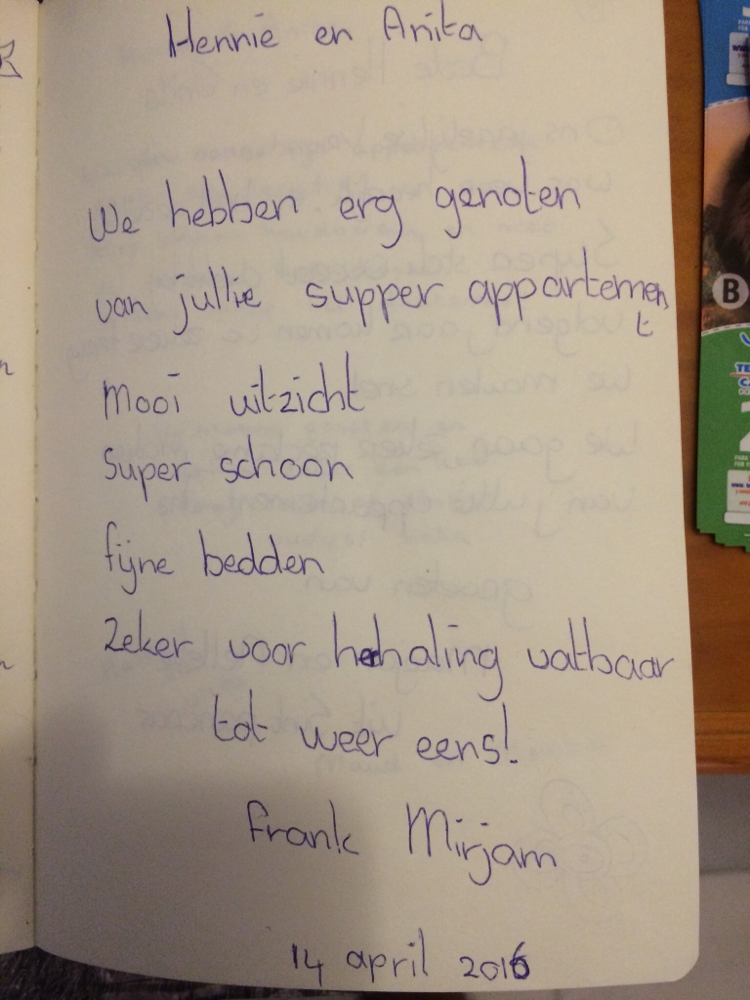 Hennie en Anita
We hebben erg genoten
van jullie supper appartemen
t
Mooi uitzicht
Super schoon
fijne bedden
Zeker voor hehaling vatbaar
tot weer eens!
Frank Mirjam
14 april 2016
B